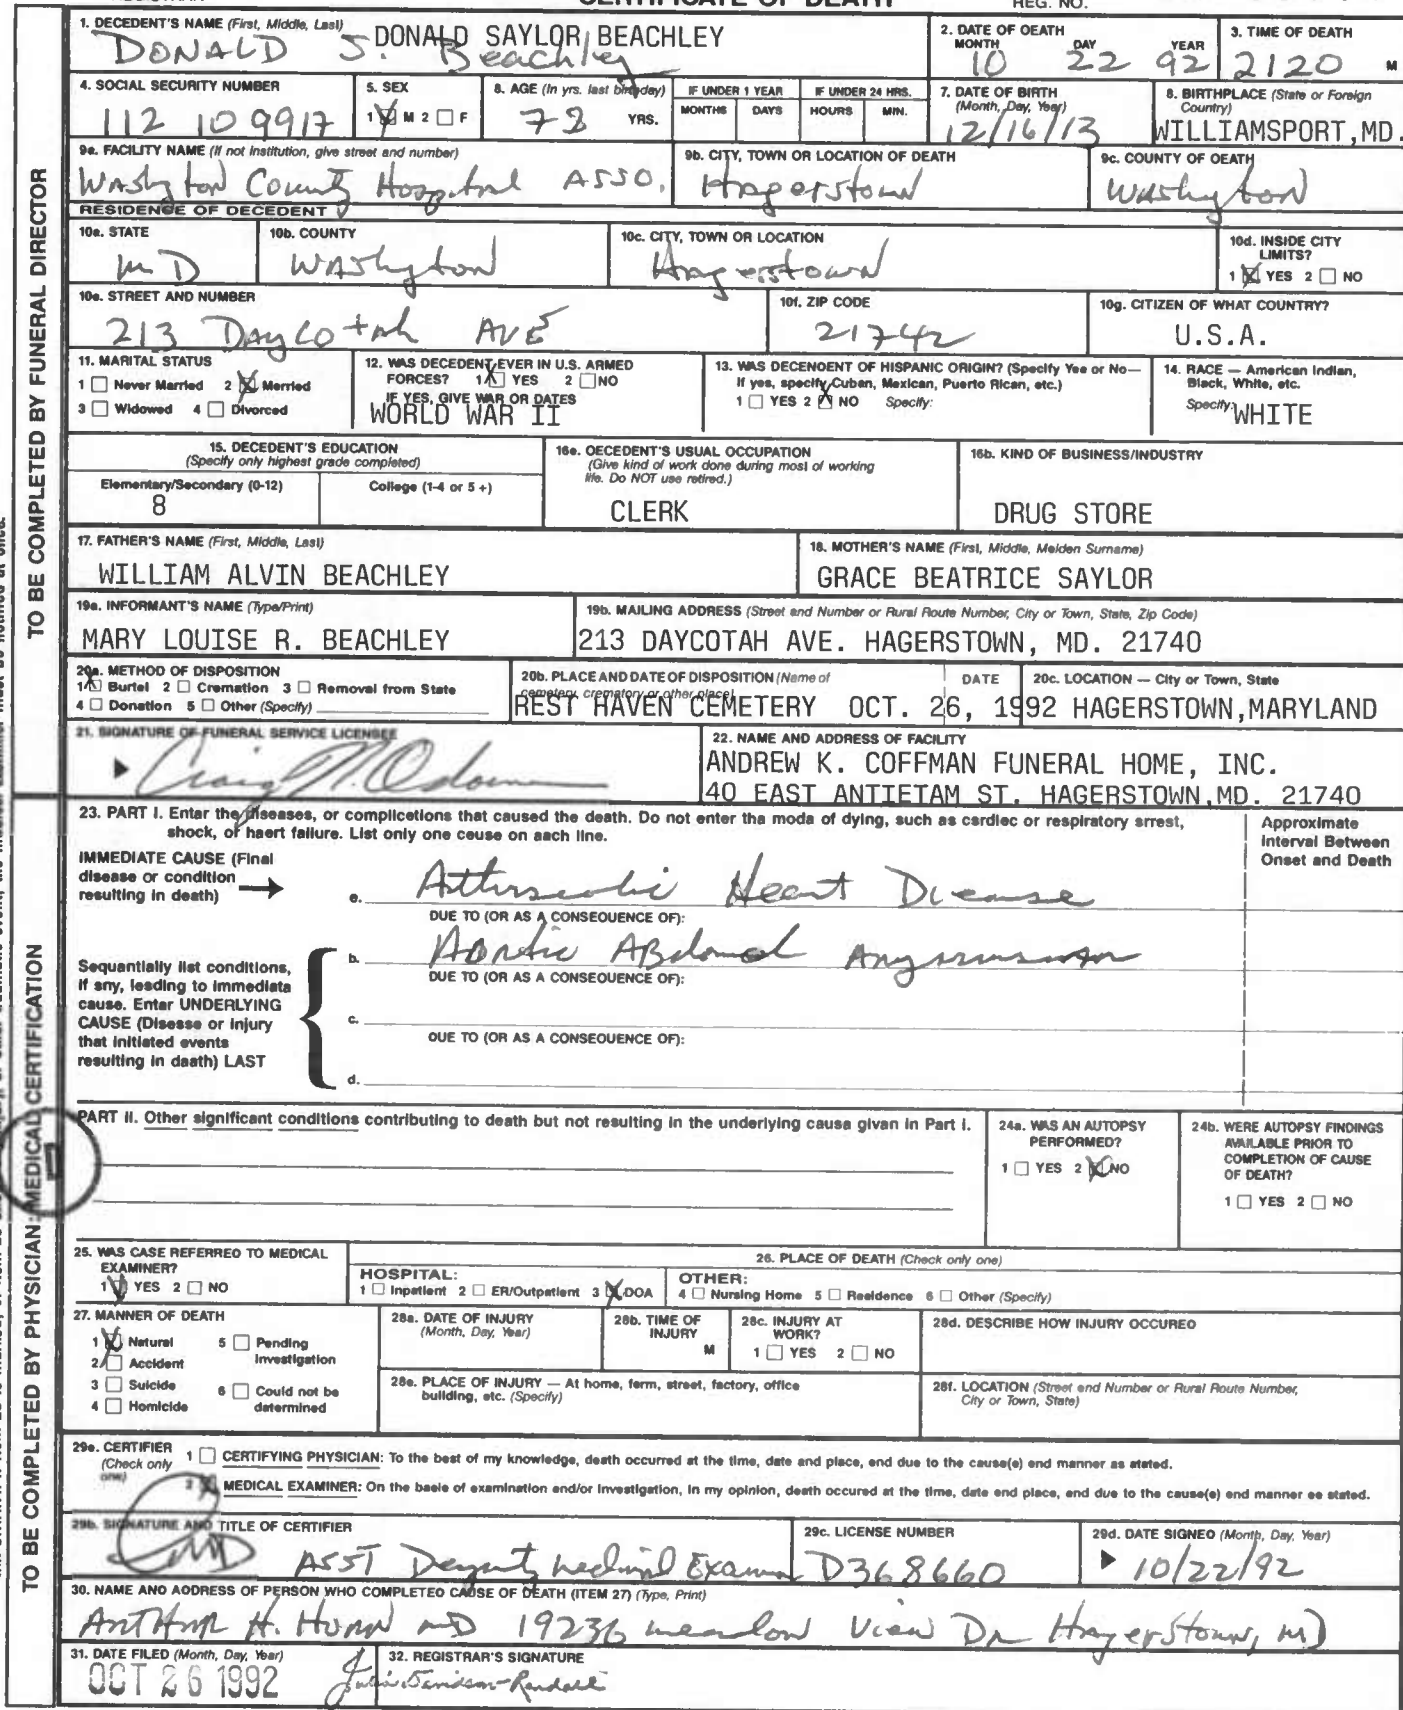 CERTIFICATE OF DEATH
REG. NO.
TO BE COMPLETED BY FUNERAL DIRECTOR
1. DECEDENT'S NAME (First, Middle, Last)
DONALD SAYLOR BEACHLEY
DONALD S. Beachley
2. DATE OF OEATH
MONTH DAY YEAR
10 22 92
3. TIME OF DEATH
2120 M
4. SOCIAL SECURITY NUMBER
112 10 9917
5. SEX
1 M 2 F
8. AGE (In yrs. last birthday)
78 YRS.
IF UNDER 1 YEAR
MONTHS DAYS
IF UNDER 24 HRS.
HOURS MIN.
7. DATE OF BIRTH
(Month, Day, Year)
12/16/13
8. BIRTHPLACE (State or Foreign
Country)
WILLIAMSPORT,MD.
9a. FACILITY NAME (If not institution, give street and number)
Washgton County Hospital ASSO.
9b. CITY, TOWN OR LOCATION OF DEATH
Hagerstown
9c. COUNTY OF OEATH
Washyton
RESIDENCE OF DECEDENT
10a. STATE
MD
10b. COUNTY
WAShyton
10c. CITY, TOWN OR LOCATION
Hagerstown
10d. INSIDE CITY
LIMITS?
1 YES 2 NO
10e. STREET AND NUMBER
213 Daycotah AVE
10f. ZIP CODE
21742
10g. CITIZEN OF WHAT COUNTRY?
U.S.A.
11. MARITAL STATUS
1 Never Married 2 Merried
3 Widowed 4 Divorced
12. WAS DECEDENT EVER IN U.S. ARMED
FORCES? 1 YES 2 NO
IF YES, GIVE WAR OR DATES
WORLD WAR II
13. WAS DECENOENT OF HISPANIC ORIGIN? (Specify Yee or No—
If yes, specify Cuban, Mexican, Puerto Rican, etc.)
1 YES 2 NO Specify:
14. RACE — American Indian,
Black, White, etc.
Specify: WHITE
15. DECEDENT'S EDUCATION
(Specify only highest grade completed)
Elementary/Secondary (0-12)
8
College (1-4 or 5 +)
16e. OECEDENT'S USUAL OCCUPATION
(Give kind of work done during most of working
life. Do NOT use retired.)
CLERK
16b. KIND OF BUSINESS/INDUSTRY
DRUG STORE
17. FATHER'S NAME (First, Middle, Last)
WILLIAM ALVIN BEACHLEY
18. MOTHER'S NAME (First, Middle, Melden Surname)
GRACE BEATRICE SAYLOR
19a. INFORMANT'S NAME (Type/Print)
MARY LOUISE R. BEACHLEY
19b. MAILING ADDRESS (Street end Number or Rural Route Number, City or Town, State, Zip Code)
213 DAYCOTAH AVE. HAGERSTOWN, MD. 21740
20a. METHOD OF DISPOSITION
1 Burlel 2 Cremation 3 Removal from State
4 Donation 5 Other (Specify)
20b. PLACE AND DATE OF DISPOSITION (Name of
cemetery, crematory or other place) DATE
REST HAVEN CEMETERY OCT. 26, 1992
20c. LOCATION — City or Town, State
HAGERSTOWN,MARYLAND
21. SIGNATURE OF FUNERAL SERVICE LICENSEE
22. NAME AND ADDRESS OF FACILITY
ANDREW K. COFFMAN FUNERAL HOME, INC.
40 EAST ANTIETAM ST. HAGERSTOWN,MD. 21740
TO BE COMPLETED BY PHYSICIAN: MEDICAL CERTIFICATION
23. PART I. Enter the diseases, or complicetions that caused the death. Do not enter tha moda of dying, such as csrdlec or respiratory srrest,
shock, or haert failure. List only one ceuse on aach line.
Approximate
Interval Between
Onset and Death
IMMEDIATE CAUSE (Final
disease or condition
resulting in death)
e. Heart Disease
DUE TO (OR AS A CONSEQUENCE OF):
Sequantially list conditions,
if sny, leading to immediata
cause. Enter UNDERLYING
CAUSE (Disesse or injury
that initiated events
resulting in daath) LAST
b. Aortic
DUE TO (OR AS A CONSEQUENCE OF):
c.
OUE TO (OR AS A CONSEOUENCE OF):
d.
PART II. Other significant conditions contributing to death but not resulting in the underlying causa givan in Part I.
24a. WAS AN AUTOPSY
PERFORMED?
1 YES 2 NO
24b. WERE AUTOPSY FINDINGS
AVAILABLE PRIOR TO
COMPLETION OF CAUSE
OF DEATH?
1 YES 2 NO
25. WAS CASE REFERRED TO MEDICAL
EXAMINER?
1 YES 2 NO
26. PLACE OF DEATH (Check only one)
HOSPITAL:
1 Inpatlent 2 ER/Outpatlent 3 DOA
OTHER:
4 Nursing Home 5 Reeldence 6 Other (Specify)
27. MANNER OF DEATH
1 Neturel 5 Pending
Investigation
2 Accident
3 Suicide 6 Could not be
determined
4 Homicide
28a. DATE OF INJURY
(Month, Day, Year)
28b. TIME OF
INJURY
M
28c. INJURY AT
WORK?
1 YES 2 NO
28d. DESCRIBE HOW INJURY OCCUREO
28e. PLACE OF INJURY — At home, ferm, street, factory, office
building, etc. (Specify)
28f. LOCATION (Street end Number or Rural Route Number,
City or Town, State)
29e. CERTIFIER
(Check only
one)
1 CERTIFYING PHYSICIAN: To the best of my knowledge, death occurred at the time, date and place, end due to the cause(e) end manner as stated.
2 MEDICAL EXAMINER: On the basle of examination end/or Investlgation, in my opinion, death occured at the time, date end place, end due to the cause(e) end manner ee stated.
29b. SIGNATURE AND TITLE OF CERTIFIER
MD ASST Deputy Medical Examin
29c. LICENSE NUMBER
D368660
29d. DATE SIGNEO (Month, Day, Year)
10/22/92
30. NAME ANO AODRESS OF PERSON WHO COMPLETEO CAUSE OF DEATH (ITEM 27) (Type, Print)
H. MD 19236 meadow View Dr Hagerstown, MD
31. DATE FILED (Month, Day, Year)
OCT 26 1992
32. REGISTRAR'S SIGNATURE
Julia Davidson-Randall